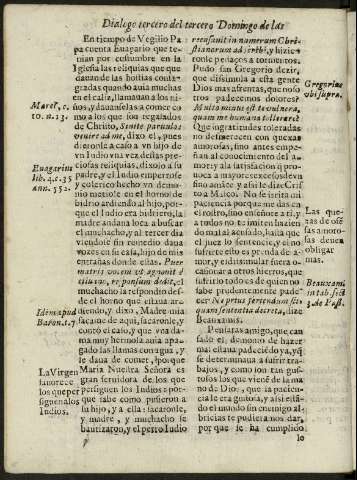 Dialogo tercero del tercero Domingo de las
En tiempo de Vegilio Pa
pa cuenta Euagario que te-
nian por costumbre en la
Iglesia las reliquias que que-
dauan de las hostias confa-
gradas quando auia muchas
en el caliz, llamauan a los ni-
ños, y dauanselas a comer co
mo a los que son regalados
de Christo, Sinite paruulos
venire ad me, dixo el, pues
dieronle a caso a vn hijo de
vn Indio vna vez destas pre-
ciosas reliquias, dixolo a su
padre, y el Indio emperrose
y colerico hecho vn demo-
nio metiole en el horno de
bidrio ardiendo al hijo, por-
que el Indio era bidriero, la
madre andaua loca a buscar
el muchacho, y al tercer dia
viendose sin remedio daua
vozes en su casa, hijo de mis
entrañas donde estas. Puer
matris vocem vt agnouit di
siluum, responsum dedit, el
muchacho la respondio des-
de el horno que estaua ar-
diendo, y dixo, Madre mia
sacame de aqui, sacaronle, y
contò el caso, y que vna da-
ma muy hermosa auia apa-
gado las llamas con agua, y
le daua de comer, porque
Maria Nuestra Señora es
gran seruidora de los que
persiguen los Indios: por-
que sabe como pusieron a
su hijo, y a ella: sacaronle,
y madre, y muchacho se
bautizaron, y el perro Indio
Marel, c.
10. n. 13.
Euagarius
lib. 4. c. 35
Ann. 552.
Idem apud
Baron. t. 7
La Virgen
fauorece
los que per
siguen a los
Indios.
recusauit in numerum Chri-
stianorum adscribi, y hizie-
ronle pedaços a tormentos.
Pudo san Gregorio dezir,
que dissimula a esta gente
Dios mas ofensas, que noso
tros padecemos dolores?
Mens ito minus est te vulnera,
quam me humana tollerare?
Que ingratitudes toleradas
no desmerecen con quexas
amorosas, sino antes empe-
ñan al conocimiento del a-
mor, y a la satisfacion, o pro-
uoca a mayores excesos de vn
fino amor, y assi le dize Crist
to a Malco. No se irrita mi
paciencia porque me das en
el rostro, sino enseñote a ti, y
a todos no se imiten hazien
do mal al acusado, hasta que
el juez lo sentencie, y el no
sufrirte es por perdida de a-
mor, y el dissimular fuera o-
casionar a otros hierros, que
sufrirlo todo es de quien no
sabe prudentemente pade-
cer. Neptus ferendum sit
quam sententia decreta, dize
Beauxamis.
Pensaras amigo, que can-
sado el, demonio de hazer
mal estaua padecido ya, yà
se determinaua a sufrir tra-
bajos, y como ion tan gus-
tosos los que viene de la ma-
no de Dios, que la pacien-
cia le era gustosa, y assi està
do el mundo sin enemigo al
bricias te pudieran dar, por
que por que se ha cumplido
Gregorius
vbi supra.
Las que-
xas de ofen
sas amoro-
sas deuen
obligar
mas.
Beauxami
in tab. sab.
3. de Pass.
p
lo